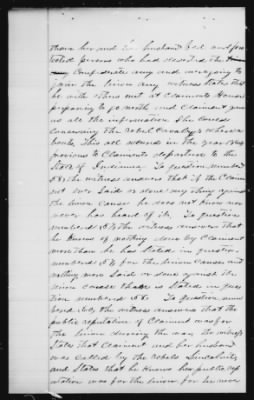 than her and her husband fed and
persons who had deserted the
Confederate army and were going to
join the Union army witness states that
he with others met at Claimants House
preparing to go north and Claimant gave
us all the information she could
concerning the Rebel Cavalry &
This all occured in the year 1864
previous to Claimants departure to the
State of Indiana. To question numbered
58 the witness answers that if the Claimant
ever said or done any thing against
the Union Cause he does not know nor
never has heard of it. To question
numbered the witness answers that
he knows of nothing done by Claimant
more than he has stated in question
numbered for the Union Cause and
nothing more said or done against the
Union Cause than is stated in question
numbered 58. To question
the witness answers that the
public reputation of Claimant was for
the Union during the war the witness
States that Claimant and her husband
was called by the rebels Lincolnites
and States that he knows her public rep
utation was for the Union for he never